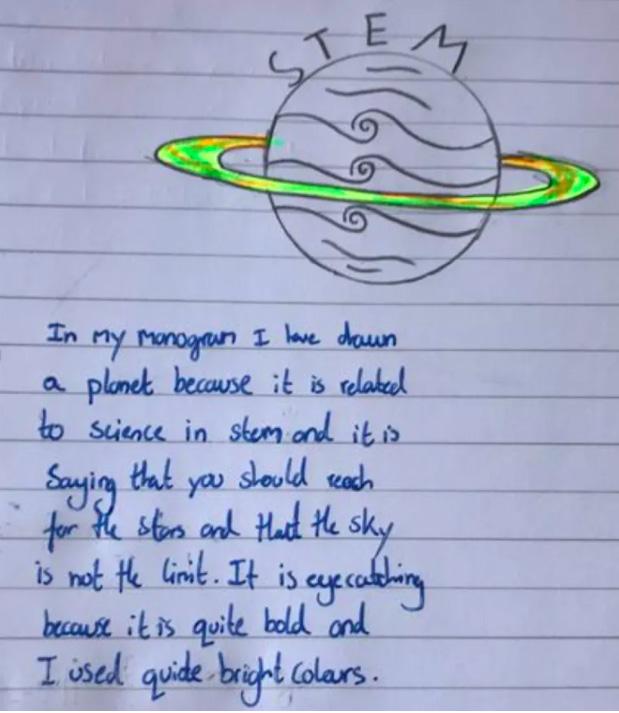 STEM
In my monogram I have drawn
a planet because it is related
to science in stem and it is
Saying that you should reach
for the stars and that the sky
is not the limit. It is eyecatching
because it is quite bold and
I used quide bright colours.